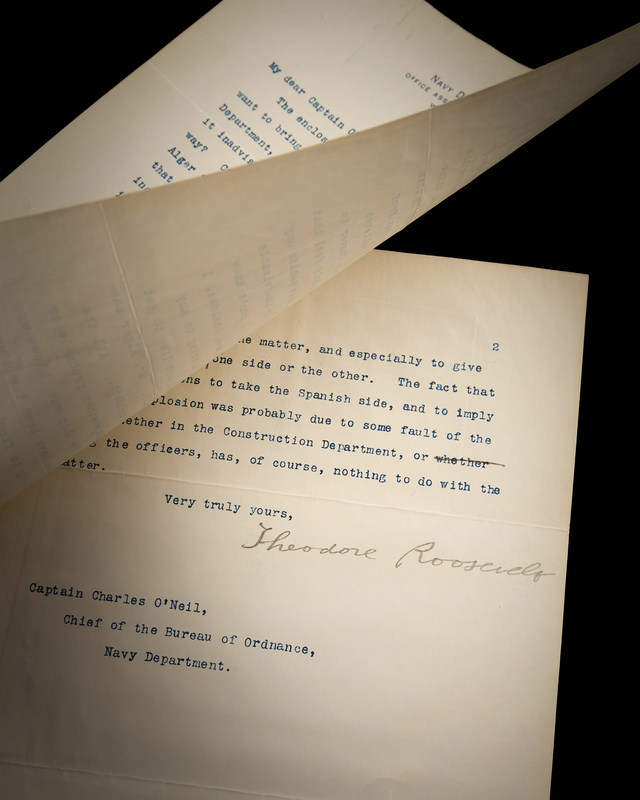 NAVY D
OFFICE ASS
My dear Captain O
The enclos
want to bring
Department,
it inadvis
way? C
Alger
that
in
2
he matter, and especially to give
one side or the other. The fact that
ns to take the Spanish side, and to imply
plosion was probably due to some fault of the
ether in the Construction Department, or whether
the officers, has, of course, nothing to do with the
atter.
Very truly yours,
Theodore Roosevelt
Captain Charles O'Neil,
Chief of the Bureau of Ordnance,
Navy Department.